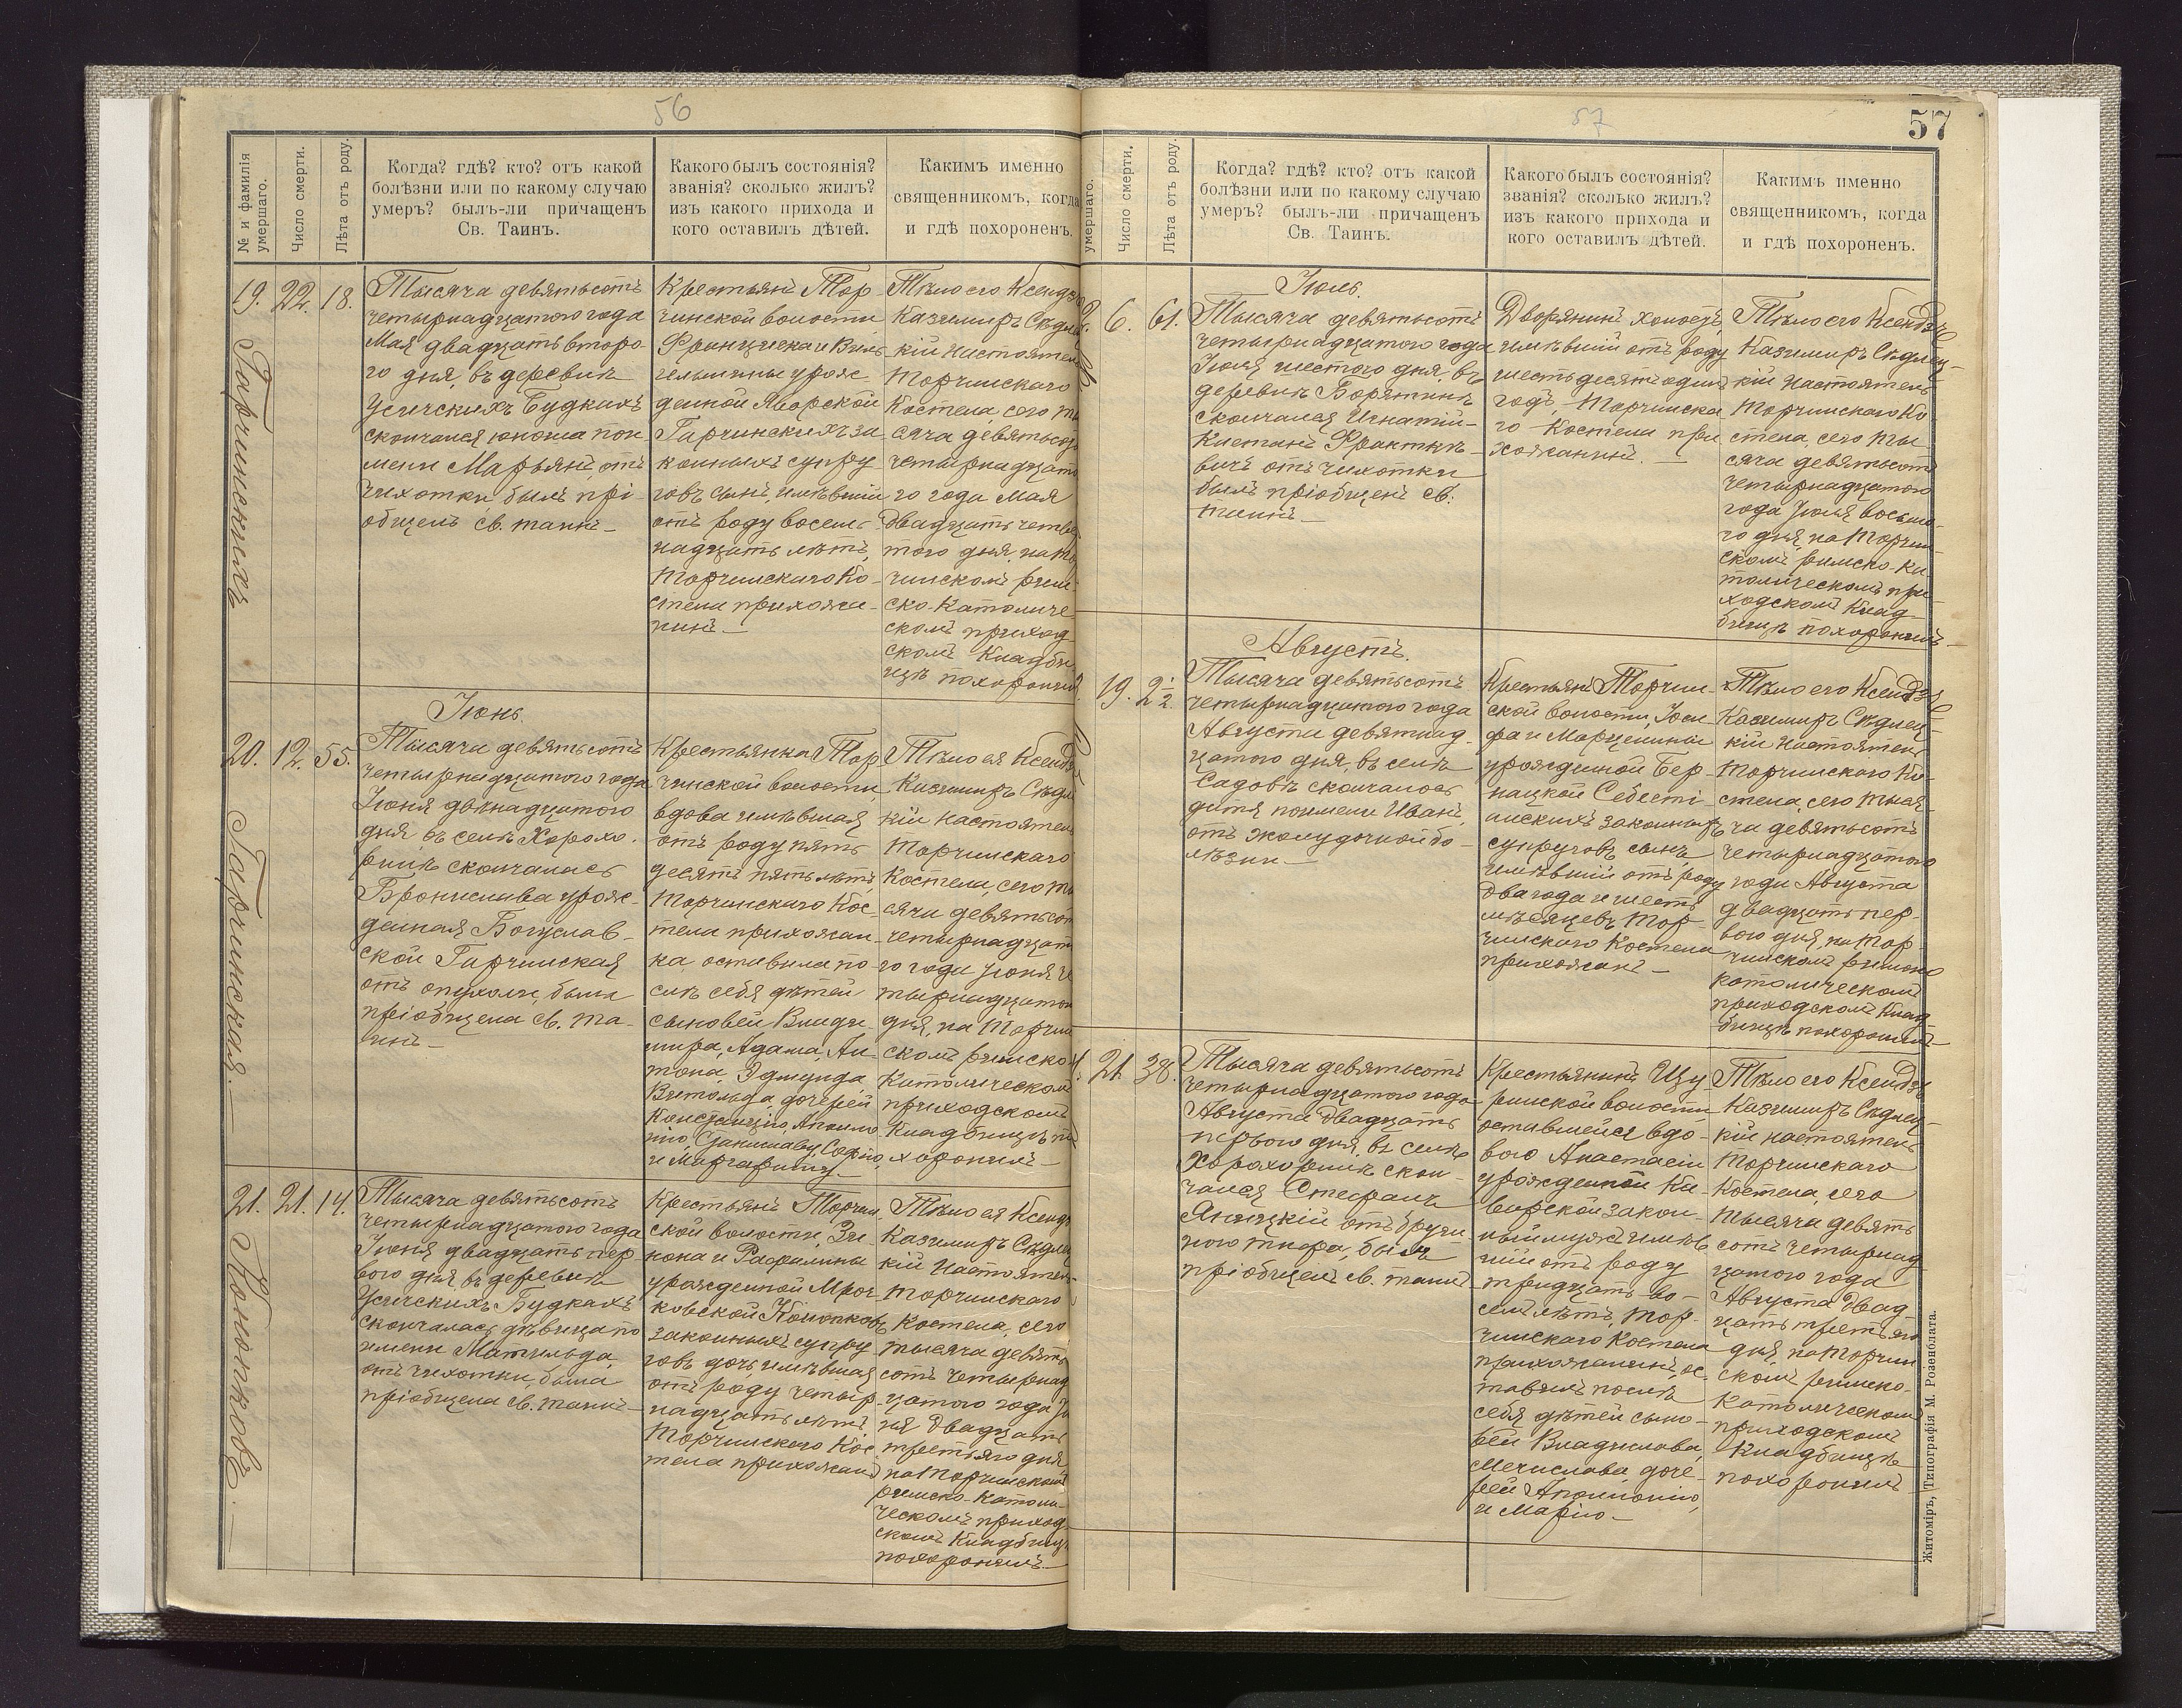 56
№ и фамилія умершаго.
Число смерти.
Лѣта отъ роду.
Когда? гдѣ? кто? отъ какой
болѣзни или по какому случаю
умеръ? былъ-ли причащенъ
Св. Таинъ.
Какого былъ состоянія?
званія? сколько жилъ?
изъ какого прихода и
кого оставилъ дѣтей.
Какимъ именно
священникомъ, когда
и гдѣ похороненъ.
19.
Гарчинскихъ
22.
18.
Тысяча девятьсотъ
четырнадцатого года
Мая двадцать второ-
го дня, въ деревнѣ
Усичскихъ Будкахъ
скончался юноша по и-
мени Марьянъ, отъ
чихотки, былъ прі-
общенъ св. таинъ —
Крестьянъ Тор-
чинской волости
Францишка и Виль-
гельмины урож-
денной Яворской
Гарчинскихъ за-
конныхъ супру-
говъ сынъ, имѣвшій
отъ роду восем-
надцать лѣтъ,
Торчинскаго Ко-
стела прихожа-
нинъ —
Тѣло его Ксендзъ
Казимиръ Сѣдлец
кій Настоятель
Торчинскаго
Костела, сего ты
сяча девятьсот
четырнадцато
го года Мая
двадцать четвер
того дня, на Тор
чинскомъ рим
ско-Католиче
скомъ приход
скомъ Кладби
щѣ похоронилъ
Іюнь.
20.
Гарчинская. —
12.
55.
Тысяча девятьсотъ
четырнадцатого года
Іюня двѣнадцатого
дня, въ селѣ Хорохо-
ринѣ скончалась
Брониславa урож-
денная Богуслав-
ской Гарчинская
отъ опухоли, была
пріобщена св. та-
инъ —
Крестьянка Тор
чинской волости,
вдова имѣвшая
отъ роду пять
десятъ пять лѣтъ,
Торчинскаго Кос-
тела прихожан-
ка, оставила по-
слѣ себя дѣтей
сыновей Влади-
мира, Адама, Ан-
тона, Эдмунда
Витольда, дочерей
Констанцію, Аполло
нію, Станиславу, Софію,
и Маргариту —
Тѣло ея Ксендзъ
Казимиръ Сѣдле
кій Настоятель
Торчинскаго
Костела, сего ты
сяча девятьсот
четырнадцат
го года Іюня че
тырнадцатого
дня, на Торчин
скомъ римско
Католическомъ
приходскомъ
Кладбищѣ по
хоронилъ —
21.
Конопковъ. —
21.
14.
Тысяча девятьсотъ
четырнадцатого года
Іюня двадцать пер
вого дня въ деревнѣ
Усичскихъ Будкахъ
скончалась дѣвица по
имени Матильда,
отъ чихотки, была
пріобщена св. таинъ —
Крестьянъ Торчин
ской волости, Зи-
нона и Рафалины
урожденной Мроч-
ковской Конопковъ
законныхъ супру
говъ дочь, имѣвшая
отъ роду четыр-
надцать лѣтъ,
Торчинскаго Кос
тела прихожан
Тѣло ея Ксендзъ
Казимиръ Сѣдлец
кій Настоятель
Торчинскаго
Костела, сего
тысяча девять
сотъ четырнад
цатого года Ію
ня двадцать
третьяго дня
на Торчинскомъ
римско-Католи-
ческомъ приход-
скомъ Кладбищѣ
похоронилъ —
57
57
умершаго.
Число смерти.
Лѣта отъ роду.
Когда? гдѣ? кто? отъ какой
болѣзни или по какому случаю
умеръ? былъ-ли причащенъ
Св. Таинъ.
Какого былъ состоянія?
званія? сколько жилъ?
изъ какого прихода и
кого оставилъ дѣтей.
Какимъ именно
священникомъ, когда
и гдѣ похороненъ.
Іюль.
6.
61.
Тысяча девятьсотъ
четырнадцатого года
Іюля шестого дня, въ
деревнѣ Борятинѣ
скончался Игнатій-
Каетанъ
отъ чихотки
былъ пріобщенъ св.
таинъ —
Дворянинъ холостъ,
имѣвшій отъ роду
шестьдесятъ одинъ
годъ, Торчинска
го Костела при
хожанинъ. —
Тѣло его Ксендзъ
Казимиръ Сѣдлец-
кій Настоятель
Торчинскаго Ко
стела, сего ты
сяча девятьсотъ
четырнадцатого
года Іюля восьмо-
го дня, на Торчин-
скомъ римско-Ка
толическомъ при
ходскомъ Клад
бищѣ похоронилъ —
Августъ.
19.
2 1/2
Тысяча девятьсотъ
четырнадцатого года
Августа девятнад-
цатого дня, въ селѣ
Садовѣ скончалось
дитя по имени Иванъ,
отъ желудочной бо-
лѣзни —
Крестьянъ Торчин-
ской волости, Іоси-
фа и Марцелиніи
урожденной Бер-
нацкой Себесті-
анскихъ законныхъ
супруговъ сынъ,
имѣвшій отъ роду
два года и шесть
мѣсяцевъ, Тор-
чинскаго Костела
прихожанъ —
Тѣло его Ксендзъ
Казимиръ Сѣдлец-
кій Настоятель
Торчинскаго Ко-
стела, сего тыся-
ча девятьсотъ
четырнадцатого
года Августа
двадцать пер-
вого дня, на Тор-
чинскомъ римско
католическомъ
приходскомъ Клад-
бищѣ похоронилъ —
21.
38.
Тысяча девятьсотъ
четырнадцатого года
Августа двадцать
первого дня, въ селѣ
Хорохоринѣ скон-
чался Стефанъ
Яницкій отъ брюш
ного тифа, былъ
пріобщенъ св. таинъ
Крестьянинъ Щу-
ринской волости
оставшейся вдо-
вою Анастасіи
урожденной Ки-
верской закон-
ный мужъ имѣв
шій отъ роду
тридцать во-
семь лѣтъ, Тор-
чинскаго Костела
прихожанинъ, ос-
тавилъ послѣ
себя дѣтей сыно-
вей Владислава,
Мечислава, доче-
рей Аполонію,
и Марію —
Тѣло его Ксендзъ
Казимиръ Сѣдлец-
кій настоятель
Торчинскаго
Костела, сего
тысяча девять
сотъ четырнад
цатого года
Августа двад
цать третьяго
дня, на Торчин
скомъ римско-
Католическомъ
приходскомъ
Кладбищѣ
похоронилъ
Житоміръ, Типографія М. Розенблата.